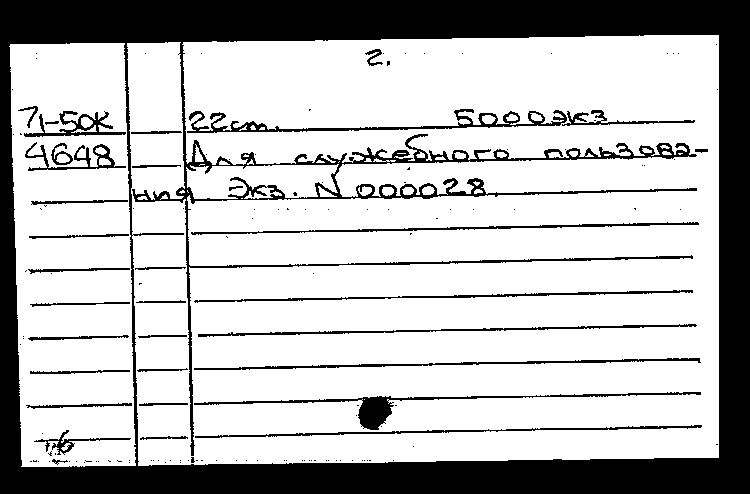 2.
71-50К 22 ст. 5000 экз
4648 Для служебного пользова-
ния Экз. N 000028.